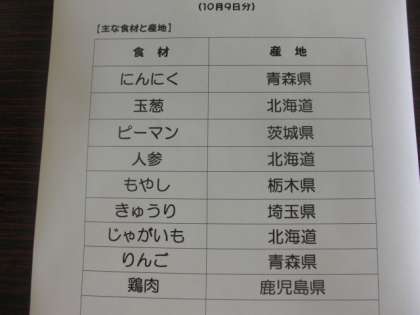 (10月9日分)
【主な食材と産地】
食材 産地
にんにく 青森県
玉葱 北海道
ピーマン 茨城県
人参 北海道
もやし 栃木県
きゅうり 埼玉県
じゃがいも 北海道
りんご 青森県
鶏肉 鹿児島県